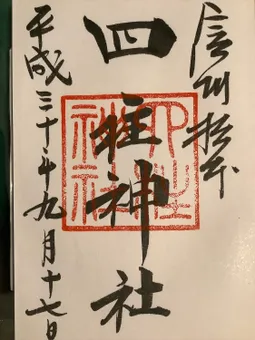 信州松本
四柱神社
四柱神社
平成三十年九月十七日